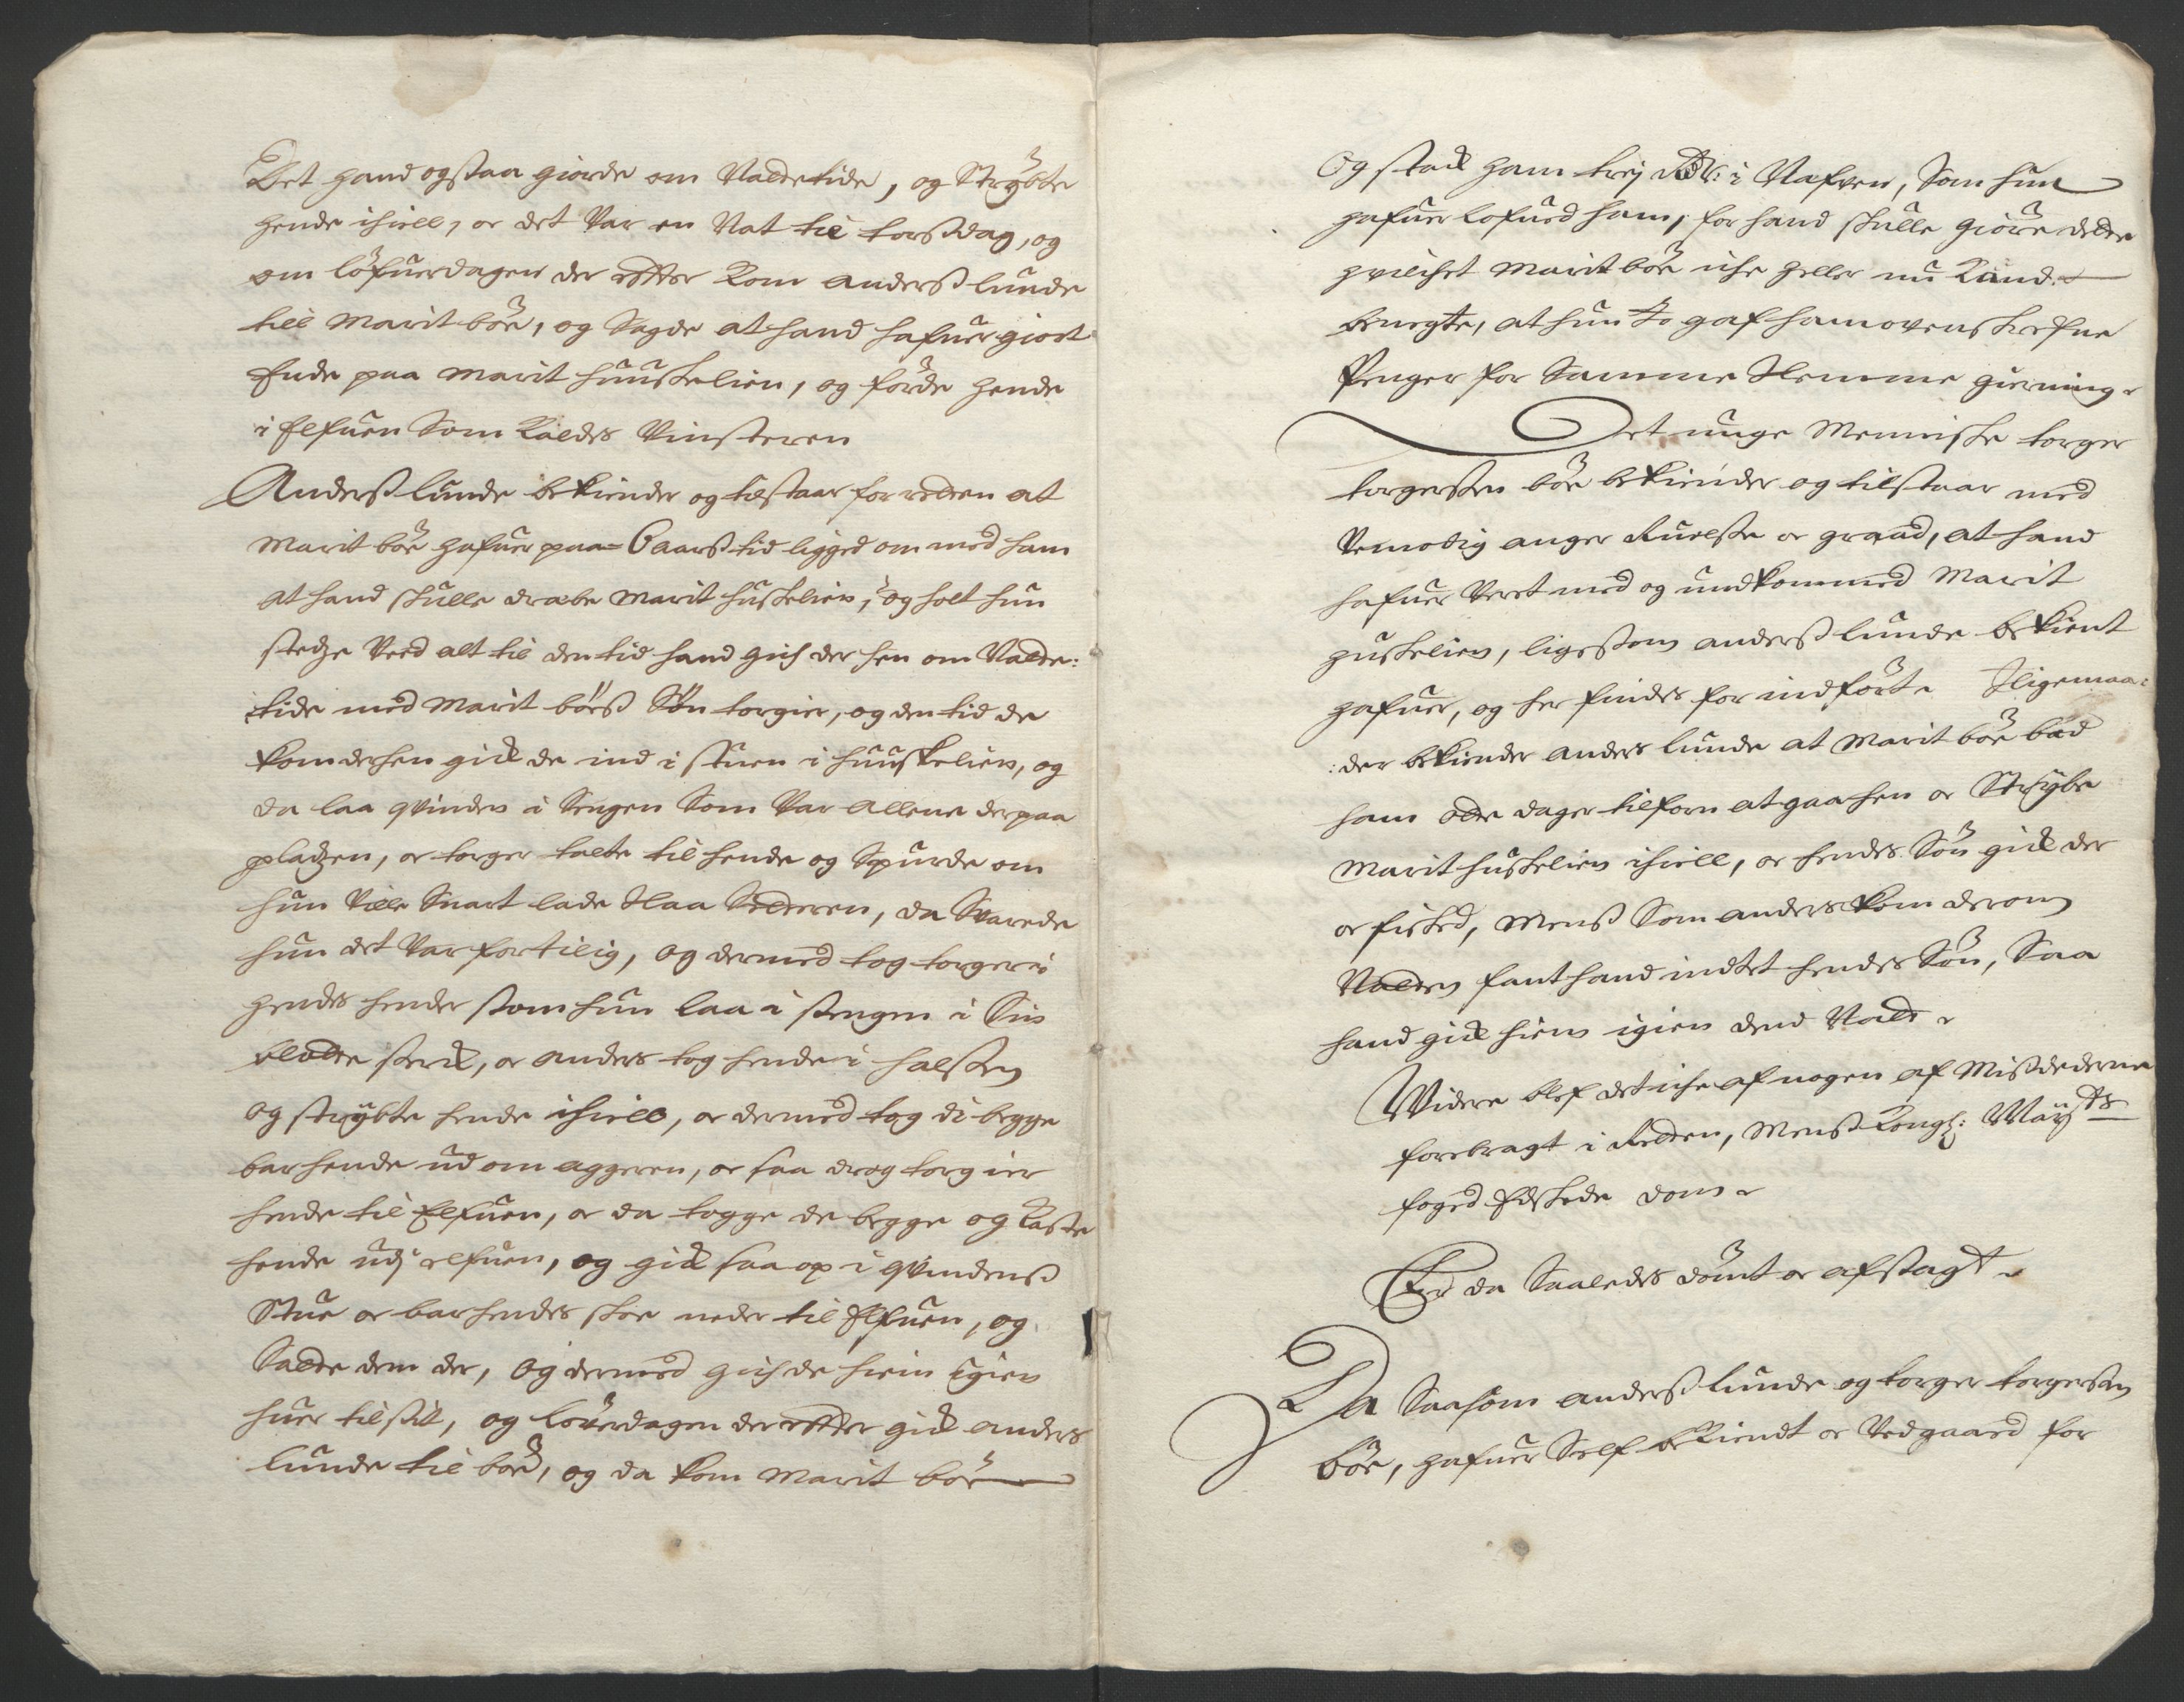 Det hand ogsaa giorde om Nattetide, og Strÿbte
hende ihiell, oc det Var en Nat til torsdag, og
om löfuerdagen der efter Kom anderß lunde
till Marit böe, og Sagde at hand hafuer giort
Ende paa Marit Huuskelien, og förde hende
i Elfuen Som Kaldes Vinsteren
Anderß lunde bekiender og tilstaar for retten at
Marit böe hafuer paa 6 aarß tid ligged om med ham
at hand skulle dræbe Marit huskelien, og holt hun
stedze Ved alt til den tid hand gich der hen om Natte:
tide med Marit böeß Sön torgier, og den tid de
kom derhen gick de ind i stuen i huuskelien, og
da laa qvinden i Sengen Som Var allene der paa
pladzen, oc torger talte til hende og Spurde om
hun Ville Snart lade Slaa Setteren, da Svarede
hun det Var for tilig, og dermed tog torger i
hendes hender som hun laa i sengen i Sin
blotte serck, oc anders tog hende i halsen
og strÿbte hende ihiell, oc dermed tog di begge
bar hende ud om aggeren, oc saa drog torgier
hende til Elfuen, oc da togge de begge og Kaste
hende udj elfuen, og gick saa op i qvindenß
Stue oc bar hendes skoe neder til Elfuen, og
Satte dem der, og dermed gich de hiem igien
huer til sit, og löuerdagen der effter gick anders
lunde til böe, og da kom Marit böe
Og stack ham trej Rdr: i Nafven, Som hun
hafuer lofued ham, for hand skulle giöre dette
hvilchet Marit böe iche heller nu Kand
benegte, at hun Jo gaf ham ovenskrefne
Penger for Samme Slemme gierning
Det unge Menniske torger
torgersen böe bekiender og tilstaar med
Vemodig anger Ruelse oc graad, at hand
hafuer Veret med og undkommed Marit
huskelien, ligesom anderß lunde bekient
hafuer, og her findes for indfört. Iligemaa:
:der bekiender anders lunde at Marit böe bad
ham otte dager tilforn at gaa hen oc Strÿbe
Marit huskelien ihiell, oc hendes Sön gick der
oc fisked, Menß Som anders kom der om
Natten fant hand indtet hendes Sön, Saa
hand gick hiem igien dend Natt
Widere blef det iche af nogen af Mißdederne
forebragt i Retten, Menß Kongl: Maÿtts
foged Eskede dom
Er da Saaledes dömt oc afsagt
Da Saasom anderß lunde og torger torgersen
böe, hafuer Self bekiendt oc Vedgaaed for